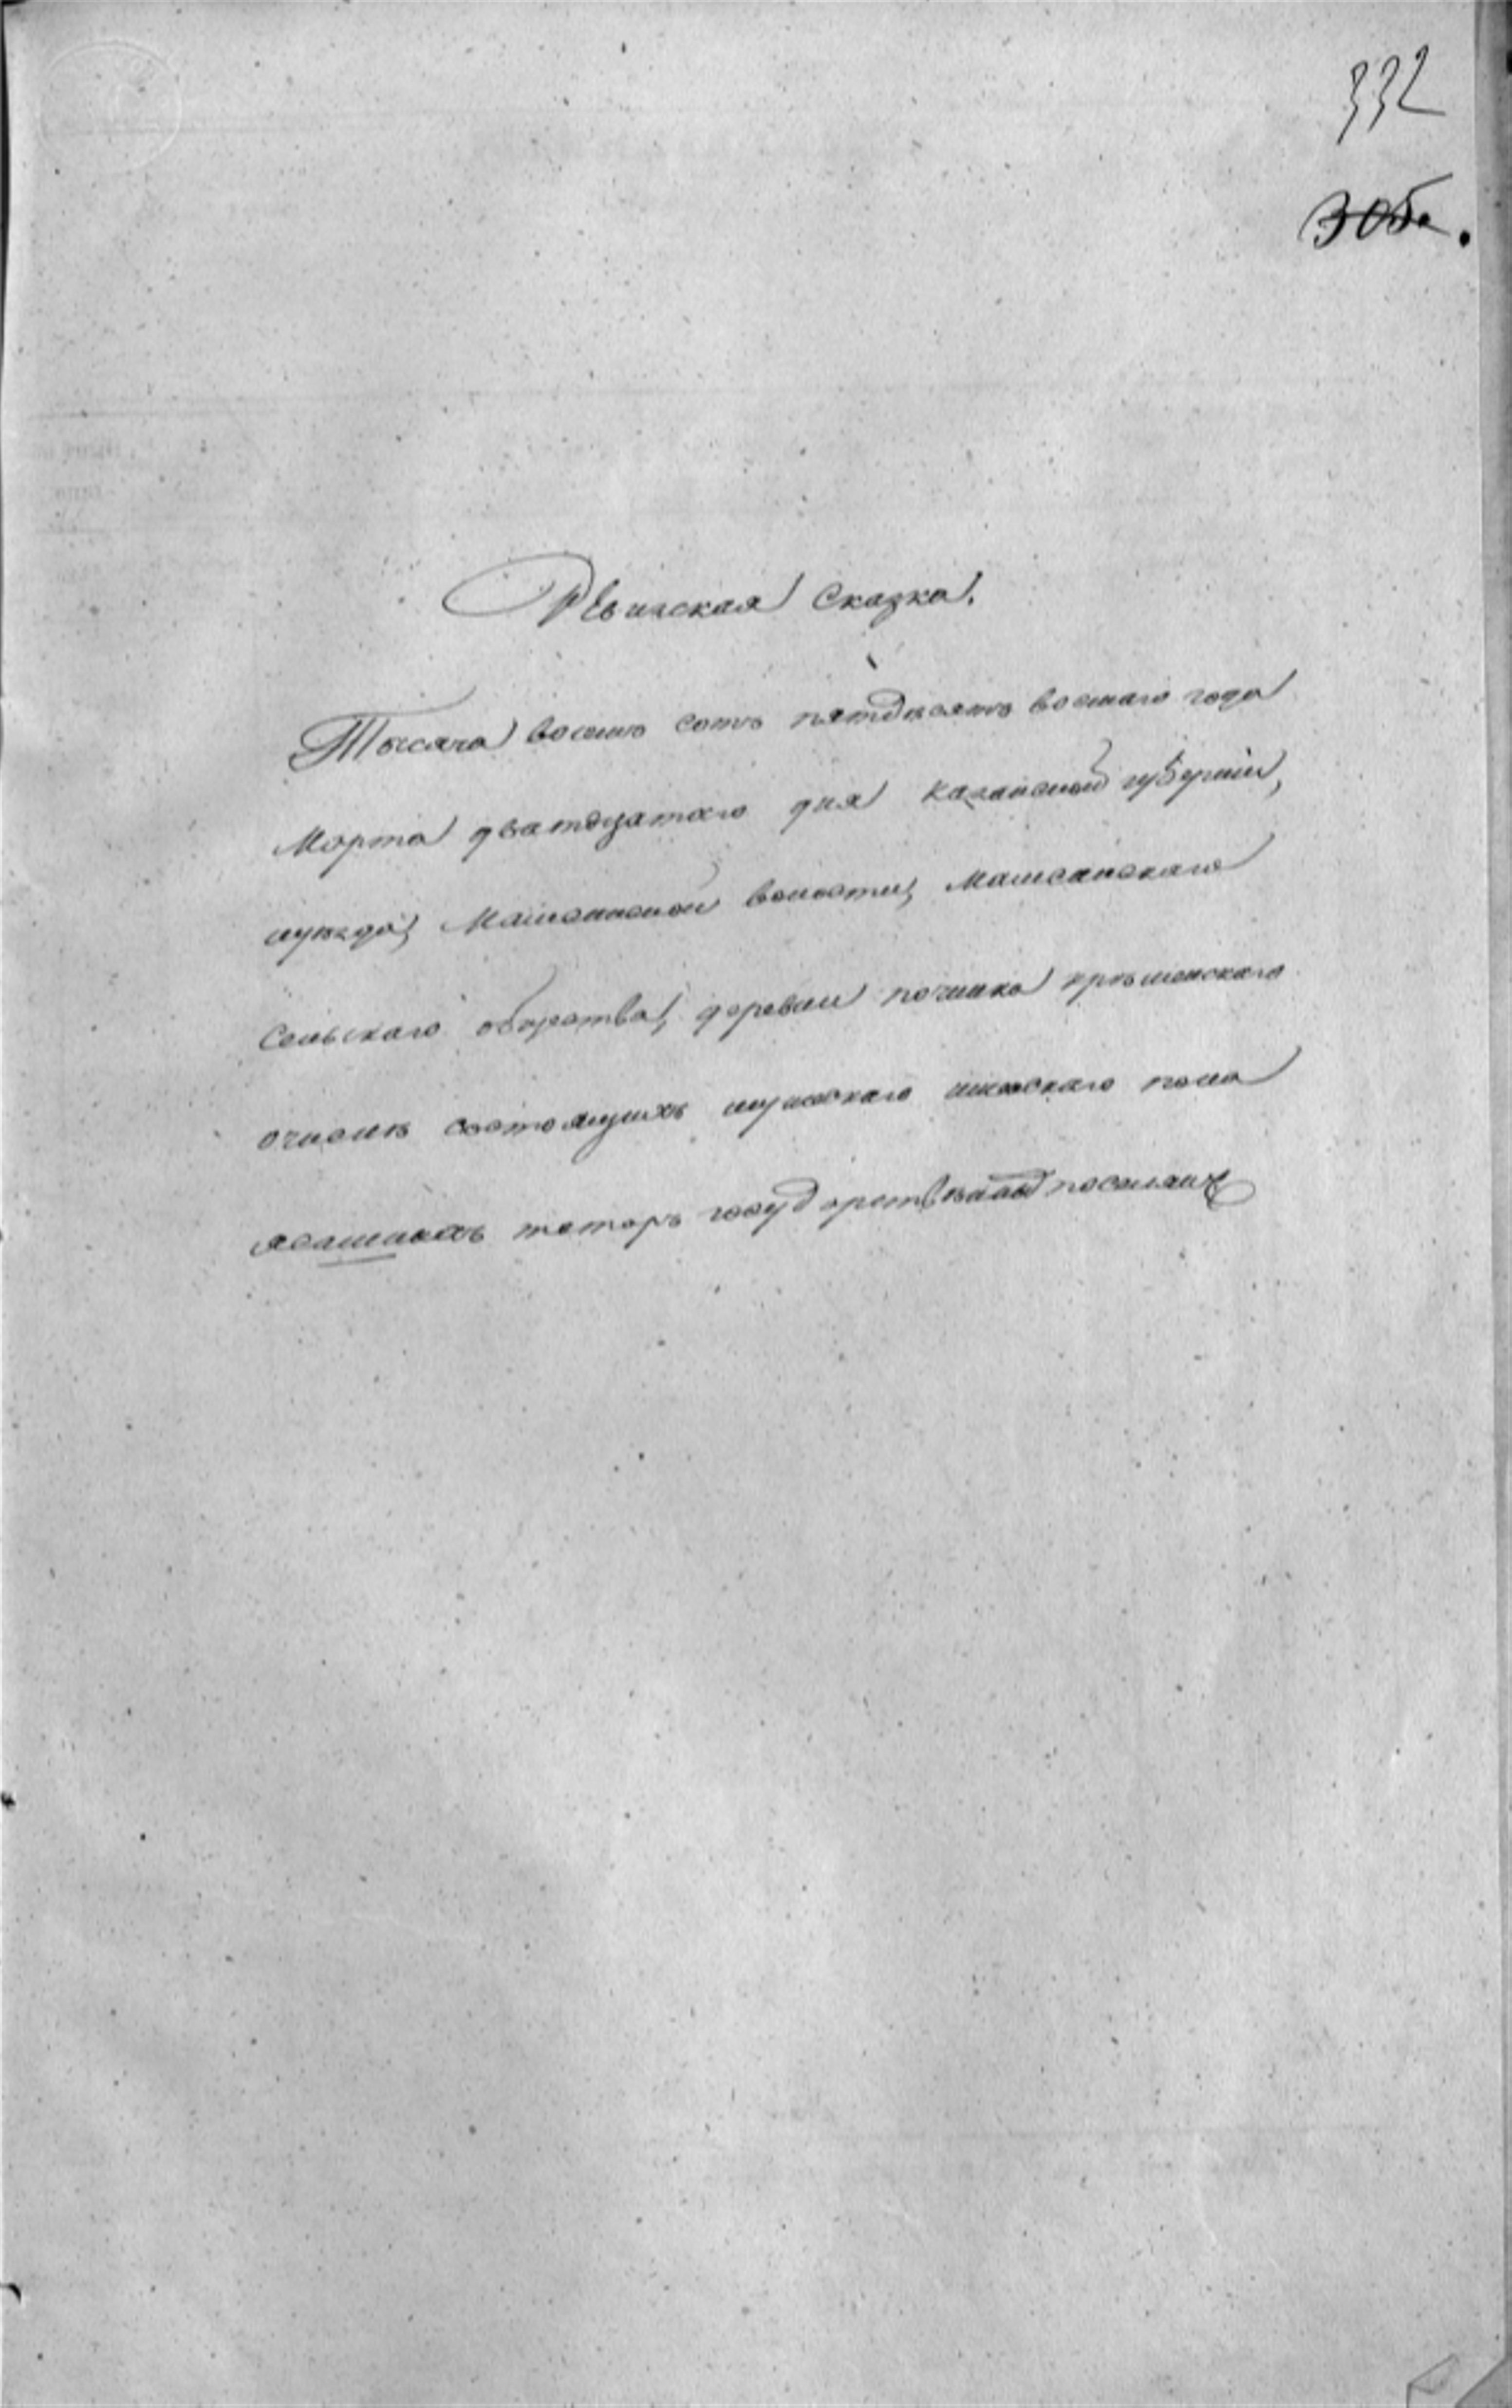 332
305.
Ревизская сказка.
Тысяча восемь сотъ пятдесятъ восмаго года
Марта дватдцатаго дня Казанской губерніи,
уѣзда, волости,
Сельскаго общества, деревни починка
о числѣ состоящихъ мужескаго женскаго пола
ясашныхъ татаръ государственныхъ поселянъ